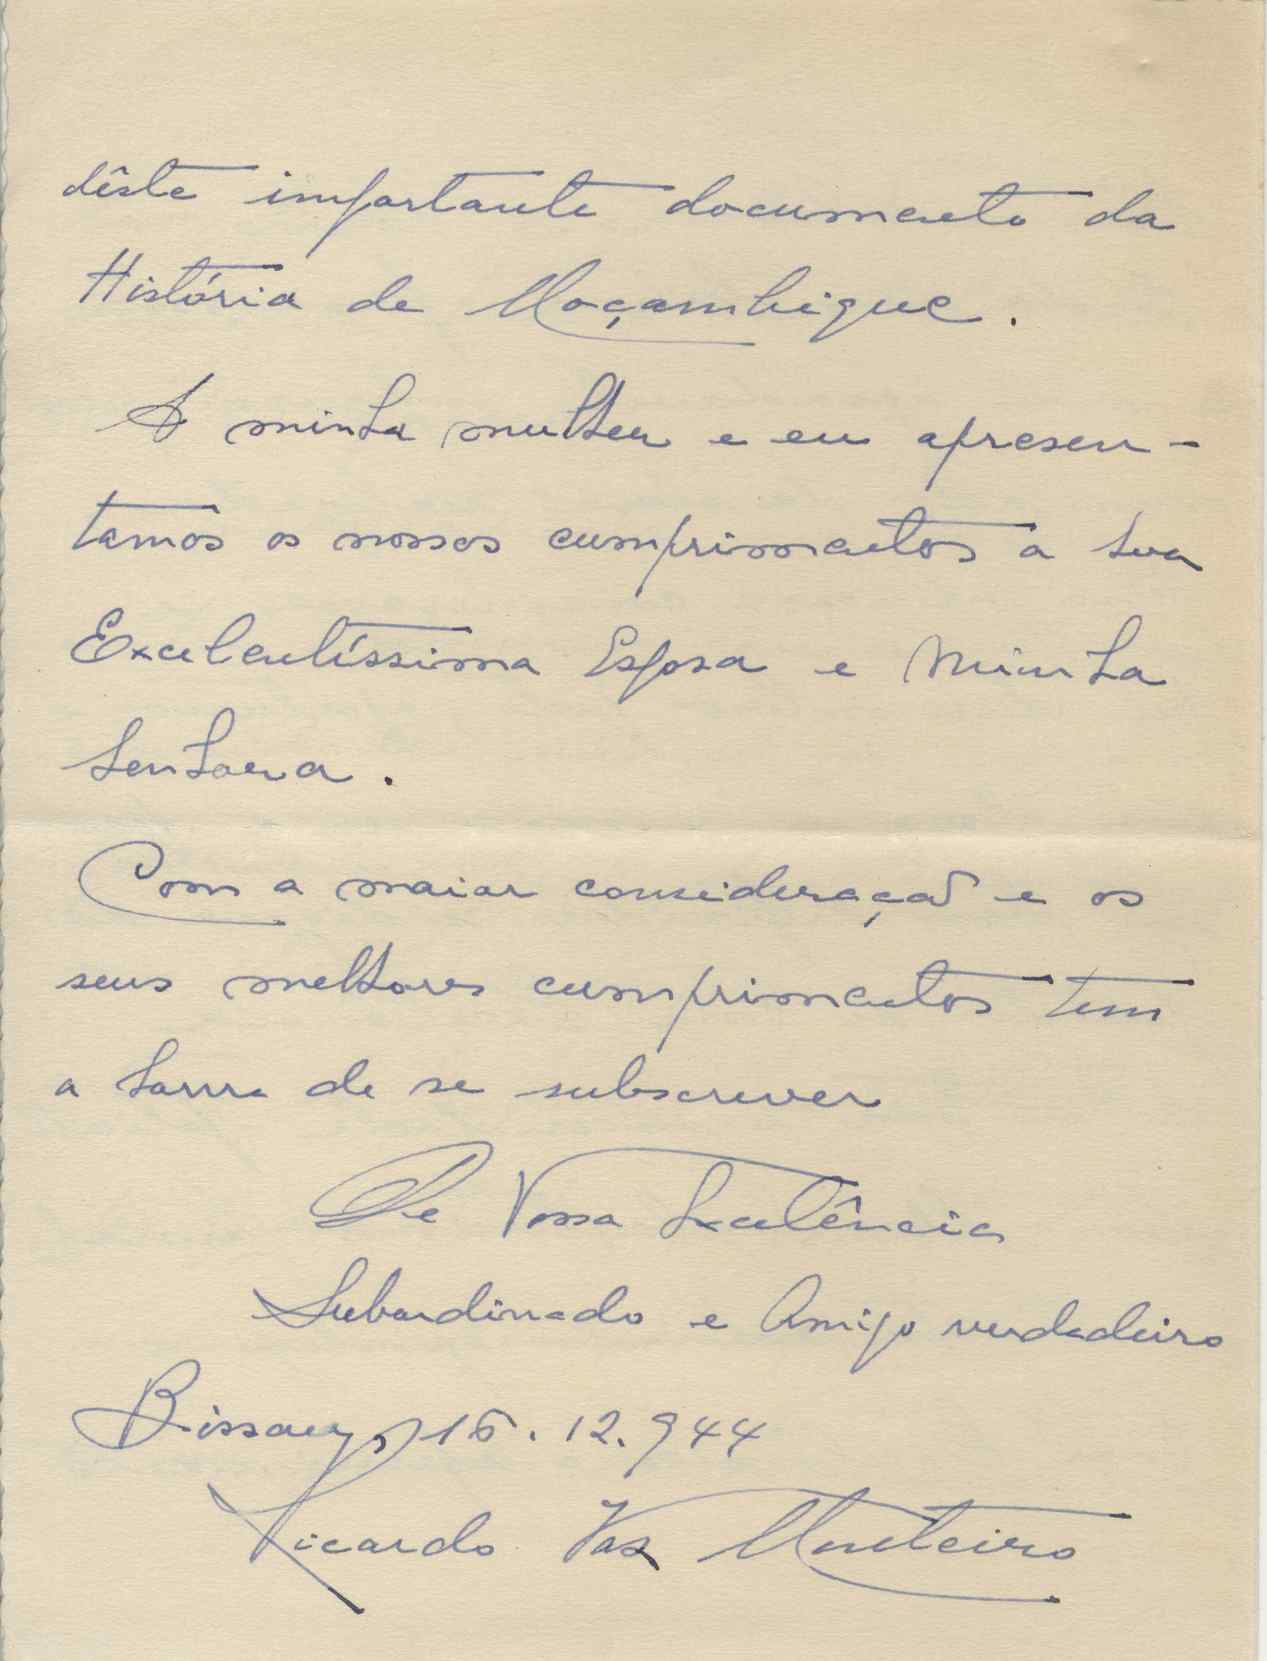 dêste importante documento da
História de Moçambique.
A minha mulher e eu apresen-
tamos os nossos cumprimentos a Sua
Excelentíssima Esposa e Minha
Senhora.
Com a maior consideração e os
seus melhores cumprimentos tem
a honra de se subscrever
De Vossa Excelência
Subordinado e Amigo verdadeiro
Bissau, 16.12.944
Ricardo Vaz Monteiro